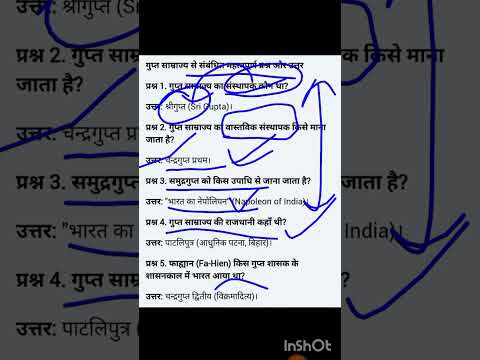 गुप्त साम्राज्य से संबंधित महत्वपूर्ण प्रश्न और उत्तर
प्रश्न 1. गुप्त साम्राज्य का संस्थापक कौन था?
उत्तर: श्रीगुप्त (Sri Gupta)।
प्रश्न 2. गुप्त साम्राज्य का वास्तविक संस्थापक किसे माना
जाता है?
उत्तर: चन्द्रगुप्त प्रथम।
प्रश्न 3. समुद्रगुप्त को किस उपाधि से जाना जाता है?
उत्तर: "भारत का नेपोलियन" (Napoleon of India)।
प्रश्न 4. गुप्त साम्राज्य की राजधानी कहाँ थी?
उत्तर: पाटलिपुत्र (आधुनिक पटना, बिहार)।
प्रश्न 5. फाह्यान (Fa-Hien) किस गुप्त शासक के
शासनकाल में भारत आया था?
उत्तर: चन्द्रगुप्त द्वितीय (विक्रमादित्य)।
उत्तर: श्रीगुप्त (Sri
प्रश्न 2. गुप्त साम्र
किसे माना
जाता है?
उत्तर: चन्द्रगुप्त
प्रश्न 3. समुद्रगुप्त
जाता है?
उत्तर: "भारत का
India)।
प्रश्न 4. गुप्त
उत्तर: पाटलिपुत्र
InShOt